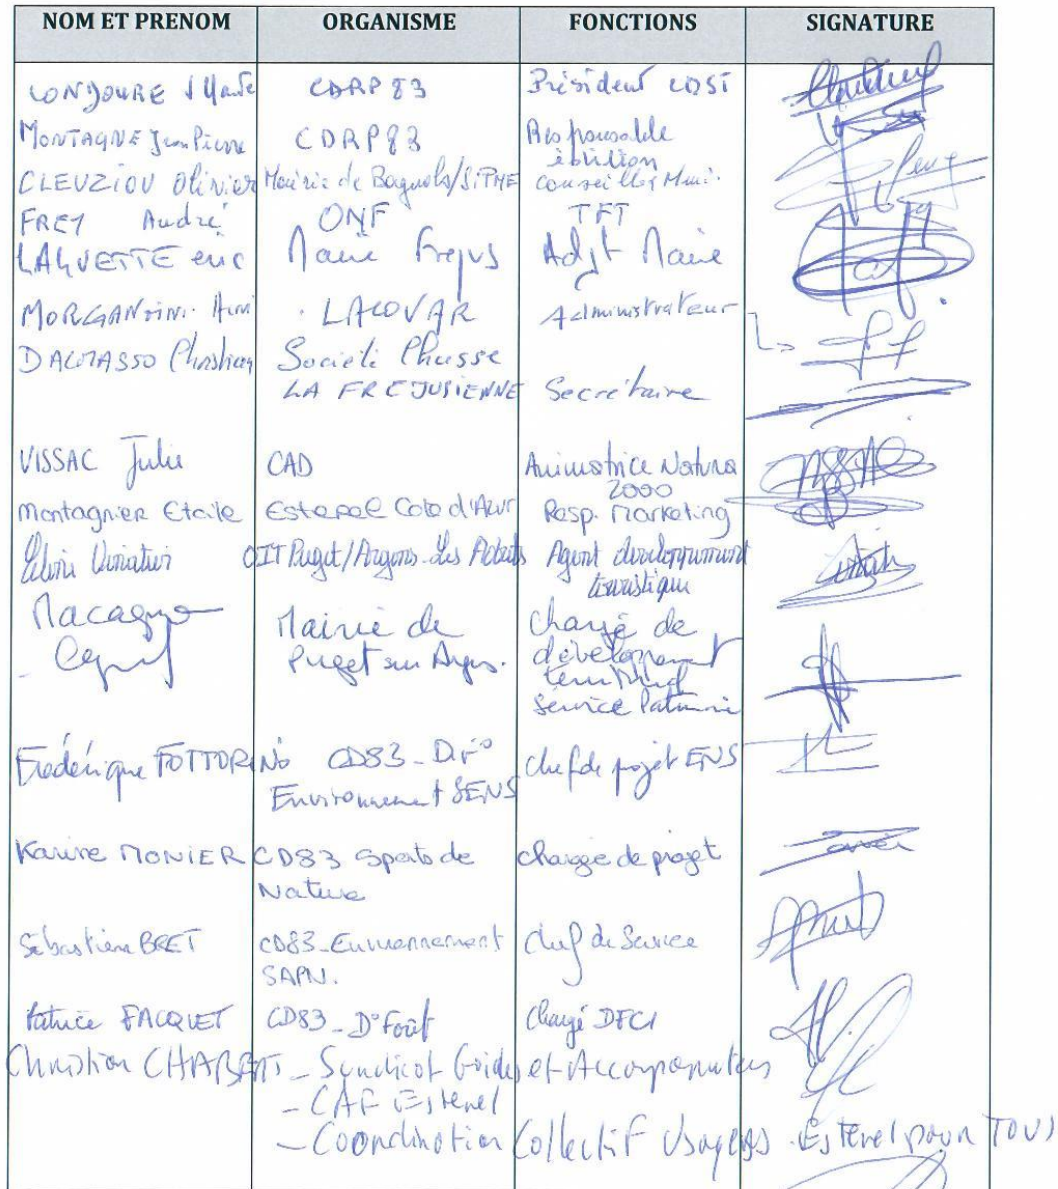 NOM ET PRENOM ORGANISME FONCTIONS SIGNATURE
LONJOURE CDRP83 Président CDSI
MONTAGNE Jean Pierre CDRP83 Responsable
CLEUZIOU Olivier Mairie de Bagnols/SIPME conseiller Muni.
FREY André ONF TFT
LAQUETTE eric Mairie Frejus Adjt Maire
MORGANTINI LACOVAR Administrateur
DALMASSO Christian Société Chasse
LA FREJUSIENNE Secrétaire
VISSAC Julie CAD Animatrice Natura
2000
Montagnier Etoile Esterel Cote d'Azur Resp. Marketing
OIT Puget/Argens Les Adrets Agent developpement
touristique
Macagno Mairie de chargé de
Puget sur Argens. développement
territorial
Service Patrimoine
Frédérique FOTTORINO CD83_Dir° Chef de projet ENS
Environnement SENS
Karine MONIER CD83 Sports de chargée de projet
Nature
Sébastien BRET CD83_Environnement Chef de Service
SAPN.
Patrice FACQUET CD83_D°Forêt Chargé DFCI
Christian CHABERT _ Syndicat Guides et Accompagnateurs
_ CAF Esterel
_ Coordination Collectif Usagers Esterel pour TOUS